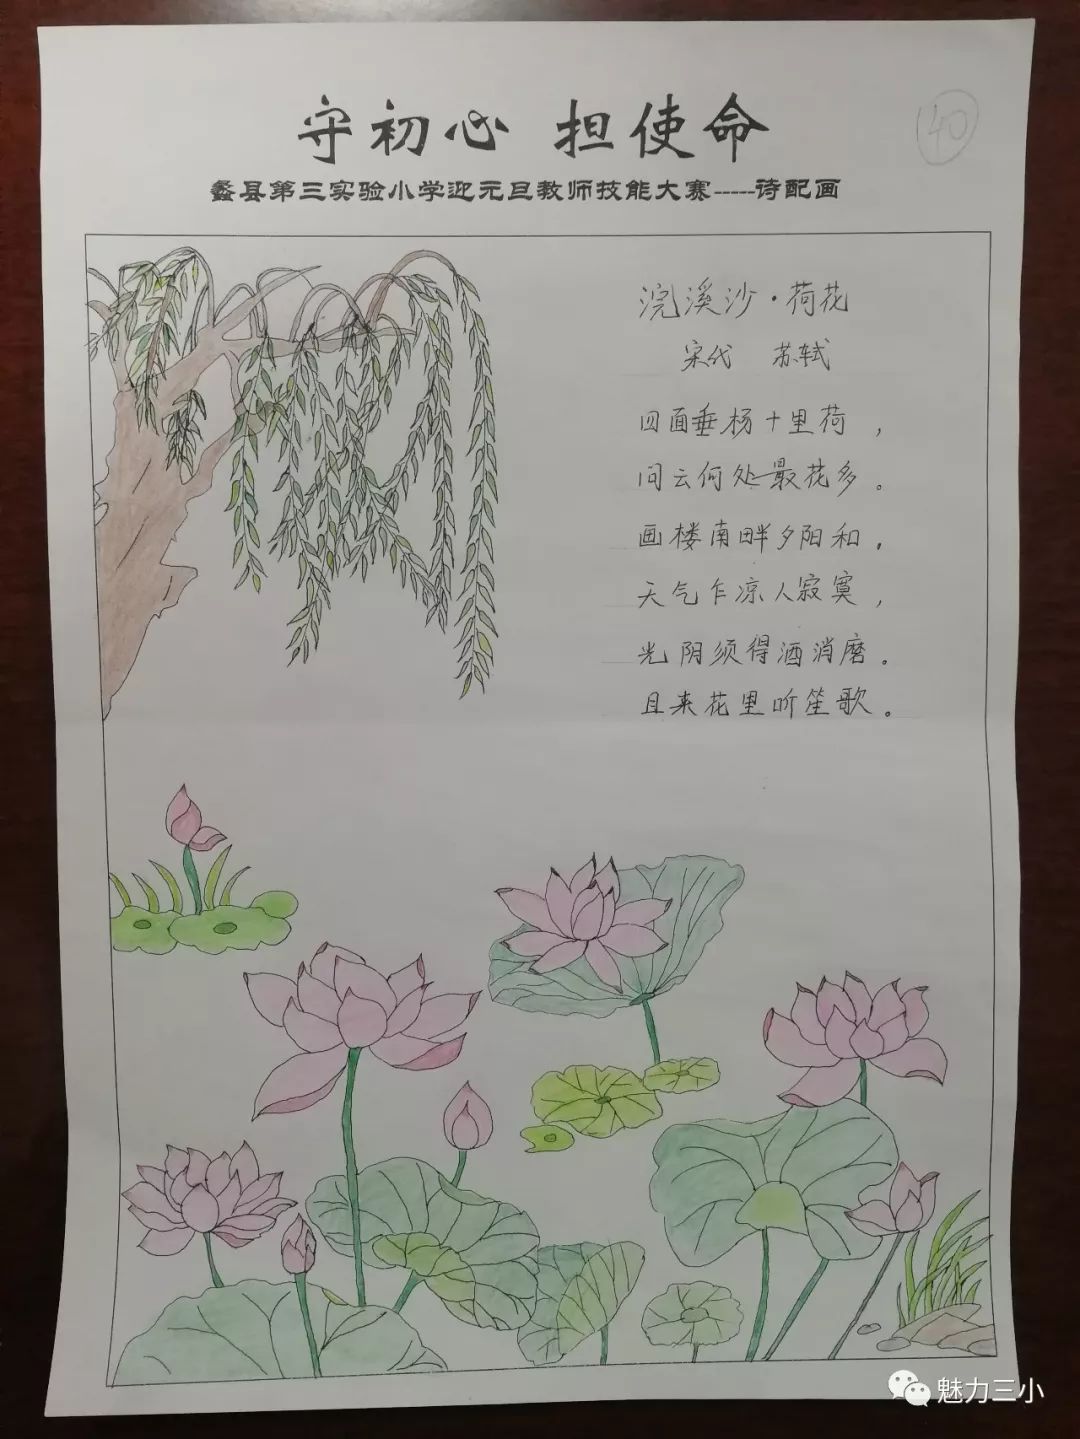 守初心 担使命
40
蠡县第三实验小学迎元旦教师技能大赛-----诗配画
浣溪沙·荷花
宋代 苏轼
四面垂杨十里荷，
问云何处最花多。
画楼南畔夕阳和。
天气乍凉人寂寞，
光阴须得酒消磨。
且来花里听笙歌。
魅力三小